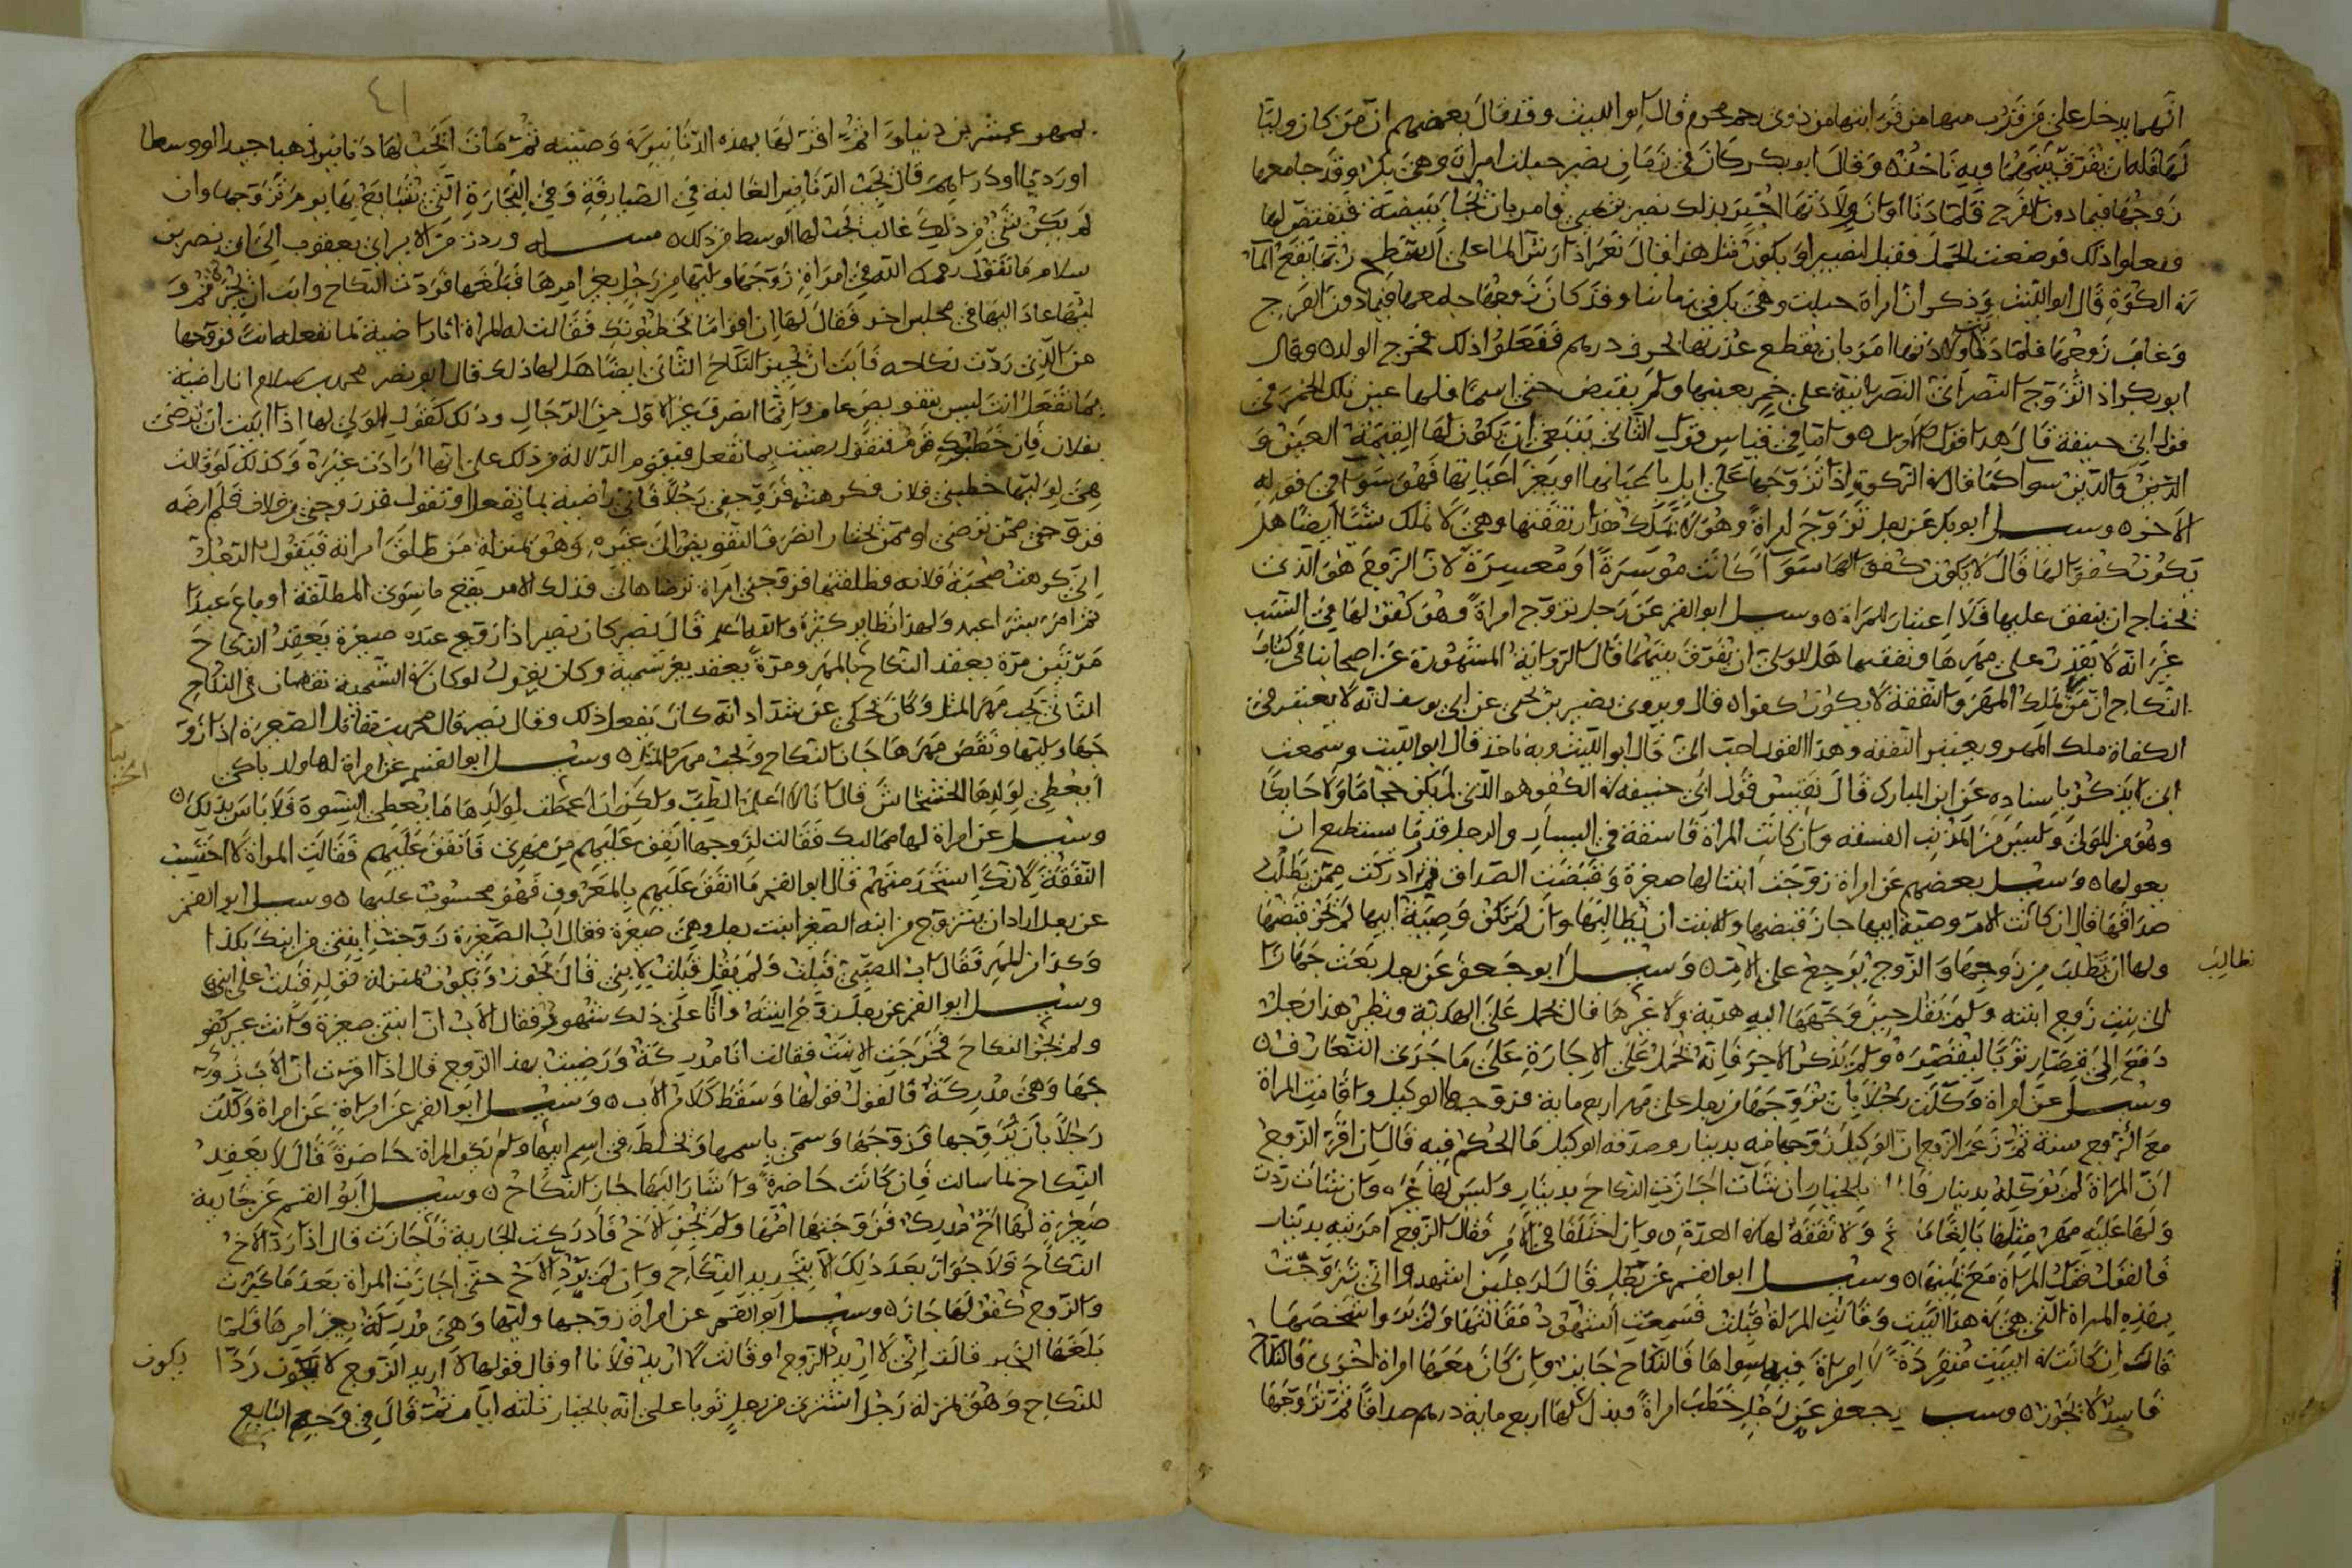 انهما يدخل على من قرب منها من قرابتها من ذوى رحم محرم قال ابو الليث وقد قال بعضهم ان من كان وليا
لها فله ان يفرق بينهما وبه ناخذ ٥ وقال ابو بكر كان فى زمان نصير حبلت امراة وهى بكر وقد جامعها
زوجها فيما دون الفرج فلما دنا اوان ولادتها اخبر بذلك نصير بن يحيى فامر بان تجا ببيضة فتفتض بها
ففعلوا ذلك فوضعت الحمل فقيل لنصير او يكون مثل هذا فقال نعم اذا رش الما على السطح ربما يقع الما
فى الكوة قال ابو الليث وذكر ان امراة حبلت وهى بكر فى زماننا وقد كان زوجها جامعها فيما دون الفرج
وغاب زوجها فلما دنا ولادتها امر بان يقطع عذرتها بحرف درهم ففعلوا ذلك فخرج الولد ٥ وقال
ابو بكر اذا تزوج النصرانى النصرانية على خمر بعينها ولم يقبض حتى اسلما فلها عين تلك الخمر فى
قول ابى حنيفة قال هذا قوله الاول ٥ واما فى قياس قوله الثانى ينبغى ان تكون لها القيمة العين و
الدين سوا كما قال فى الزكوة اذا تزوجها على ابل باعيانها او بغير اعيانها فهو سوا فى قوله
الاخر ٥ وسئل ابو بكر عن رجل تزوج امراة وهو يملك مقدار نفقتها وهى لا تملك شيا ايضا هل
يكون كفوا لها قال لا يكون كفوا لها سوا كانت موسرة او معسرة لان الزوج هو الذى
يحتاج ان ينفق عليها فلا اعتبار للمراة ٥ وسئل ابو القسم عن رجل تزوج امراة وهو كفؤ لها فى النسب
غير انه لا يقدر على مهرها ونفقتها هل للولى ان يفرق بينهما قال الرواية المشهورة عن اصحابنا فى كتاب
النكاح ان من لا يملك المهر والنفقة لا يكون كفوا ٥ قال ويروى نصير بن يحيى عن ابى يوسف انه لا يعتبر فى
الكفاة ملك المهر ويعتبر النفقة وهذا القول احب الى قال ابو الليث وبه ناخذ قال ابو الليث وسمعت
ابى يذكر باسناده عن ابن المبارك قال تفسير قول ابى حنيفة فى الكفو هو الذى لم يكن حجاما ولا حايكا
وهو من الموالى وليس من العرب الفسقة وان كانت المراة فاسقة فى اليسار والرجل قدر ما يستطيع ان
يعولها ٥ وسئل بعضهم عن امراة زوجت ابنتا لها صغيرة وقبضت الصداق ثم ادركت ممن تطلب
صداقها قال ان كانت الام وصية ابيها جاز قبضها وللابنت ان تطالبها وان لم تكن وصية ابيها لم يجز قبضها
ولها ان تطلب من زوجها والزوج يرجع على الام ٥ وسئل ابو جعفر عن رجل بعث جهازا
تطالب
الى بيت زوج ابنته ولم يقل حين وجهها اليه هدية ولا غيرها قال يحمل على الهدية ونظير هذا رجل
دفع الى قصار ثوبا ليقصره ولم يذكر الاجر فانه يحمل على الاجارة على ما جرى التعارف ٥
وسئل عن امراة وكلت رجلا بان يزوجها من رجل على مهر اربع ماية فزوجها الوكيل واقامت المراة
مع الزوج سنة ثم زعم الزوج ان الوكيل زوجها منه بدينار وصدقه الوكيل ما الحكم فيه قال ان اقر الزوج
ان المراة لم توكله بدينار بالخيار ان شات اجازت النكاح بدينار وليس لها غيره وان شات ردت
ولها عليه مهر مثلها بالغا ما ولا نفقة لها فى العدة ٥ وان اختلفا فى الامر فقال الزوج امرتيه بدينار
فالقول قول المراة مع يمينها ٥ وسئل ابو القسم عن رجل قال لرجلين اشهدوا انى تزوجت
بهذه المراة التى هى فى هذا البيت وقالت المراة قبلت فسمعت الشهود مقالتها ولم يروا شخصها
قال ان كانت فى البيت منفردة لا امراة فيها سواها فالنكاح جايز وان كان معها امراة اخرى فالنكاح
فاسد لا يجوز ٥ وسئل جعفر عن رجل خطب امراة وبذل لها اربع ماية درهم صداقا ثم تزوجها
٤١
بمهر عشرين دينار ثم اقر لها بهذه الدنانير فى وصيته ثم مات ايجب لها دنانير ذهبا جيدا او وسطا
او رديا او دراهم قال يجب الدنانير الغالبة فى الصيارفة وفى التجارة التى يتبايع بها يوم تزوجها وان
لم يكن شى من ذلك غالب يجب لها الوسط من ذلك ٥ مسئلة وردت من الامير ابى يعقوب الى ابى نصر بن
سلام ما تقول رحمك الله فى امراة زوجها وليها من رجل بغير امرها فبلغها فردت النكاح وابت ان تجيز ثم
وليها عاد اليها فى مجلس اخر فقال لها ان اقواما يخطبونك فقالت له المراة انا راضية بما تفعله انت فزوجها
من الذى ردت نكاحه فابت ان تجيز النكاح الثانى ايضا هل لها ذلك قال ابو نصر محمد بن سلام انا راضية
بما تفعل انت ليس بتفويض عام وانما انصرف عن الاول من الرجال وذلك كقول الولى لها اذا ابيت ان ترضى
بفلان فان خطبوك قوم فتقول رضيت بما تفعل فيقوم الدلالة من ذلك على انها ارادت غيره وكذلك لو قالت
هى لوليها خطبنى فلان فكرهته فزوجنى رجلا فانى راضية بما تفعل او تقول قد زوجتنى من فلان فلم ارضه
فزوجنى ممن ترضى او ممن تختار انصرف التفويض الى غيره وهو بمنزلة من طلق امراته فيقول الرجل
انى كرهت صحبة فلانة فطلقتها فزوجنى امراة ترضاها لى فذلك الامر يقع ما سوى المطلقة او باع عبدا
ثم امره بشرا عبد ولهذا نظاير كثيرة والله اعلم قال نصر كان نصير اذا رفع عنده صغيرة يعقد النكاح
مرتين مرة يعقد النكاح بالمهر ومرة يعقد بغير تسمية وكان يقول لو كان فى التسمية نقصان فى النكاح
الثانى يجب مهر المثل وكان يحكى عن شداد انه كان يفعل ذلك وقال نصير قال محمد بن مقاتل الصغيرة اذا زو
جها وليها ونقص مهرها جاز النكاح ويجب مهر المثل ٥ وسئل ابو القسم عن امراة لها ولد باكى
ايعطى لولدها الخشخاش قال انا لا اعلم الطب ولكن ان اعطت لولدها ما يعطى النسوة فلا باس بذلك ٥
وسئل عن امراة لها مماليك فقالت لزوجها انفق عليهم من مهرى فانفق عليهم فقالت المراة لا احتسب
النفقة لانك استخدمتهم قال ابو القسم ما انفق عليهم بالمعروف فهو محسوب عليها ٥ وسئل ابو القسم
عن رجل اراد ان يتزوج من ابنه الصغير ابنت رجل وهى صغيرة فقال اب الصغيرة زوجت ابنتى من ابنك بكذا
وكذا من المهر فقال اب الصبى قبلت ولم يقل قبلت لابنى قال يجوز ويكون بمنزلة قوله قبلت على ابنى ٥
وسئل ابو القسم عن رجل زوج ابنته وانا على ذلك شهود فقال الاب ان ابنتى صغيرة وانت غير كفو
ولم يجز النكاح فخرجت الابنت فقالت انا مدركة ورضيت بهذا الزوج قال اذا اقرت ان الاب زو
جها وهى مدركة فالقول قولها وسقط كلام الاب ٥ وسئل ابو القسم عن امراة عن امراة وكلت
رجلا بان يزوجها فزوجها وسمى باسمها وتخلط فى اسم ابيها ولم تكن المراة حاضرة قال لا يعقد
النكاح بما سالت فان كانت حاضرة واشار اليها جاز النكاح ٥ وسئل ابو القسم عن جارية
صغيرة لها اخ مدرك فزوجتها امها ولم يجز الاخ فادركت الجارية فاجازت قال اذا رد الاخ
النكاح فلا جواز بعد ذلك الا بتجديد النكاح وان لم يرد الاخ حتى اجازت المراة بعد ما كبرت
والزوج كفو لها جاز ٥ وسئل ابو القسم عن امراة زوجها وليها وهى مدركة بغير امرها فلما
بلغها الخبر قالت انى لا اريد الزوج او قالت لا اريد فلانا او قال قولها لا اريد الزوج لا يكون ردا
يكون
للنكاح وهو بمنزلة رجل اشترى من رجل ثوبا على انه بالخيار ثلثة ايام ثم قال فى وجه البايع